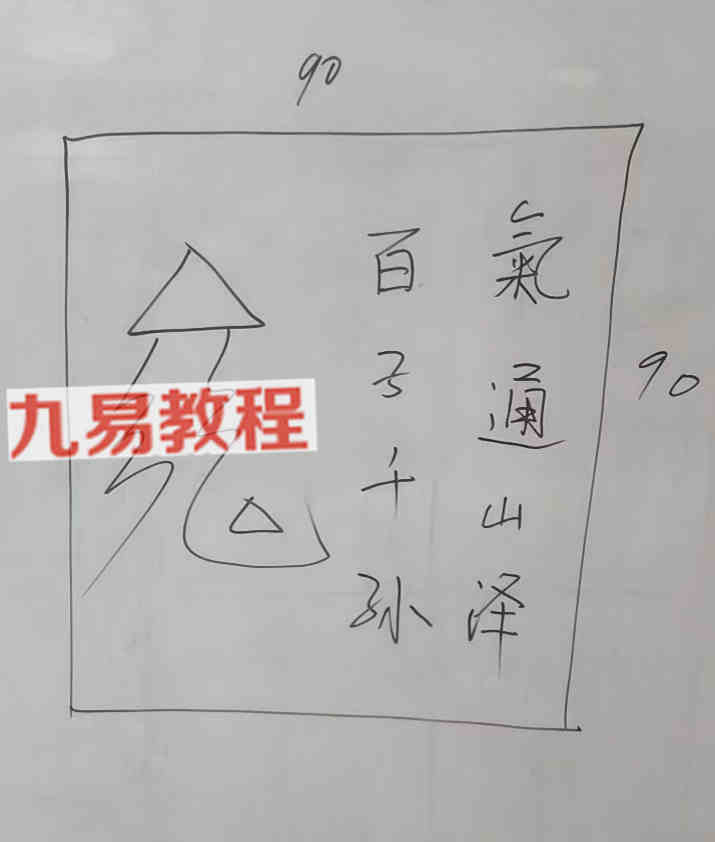 90
氣通山泽
百子千孙
90
九易教程